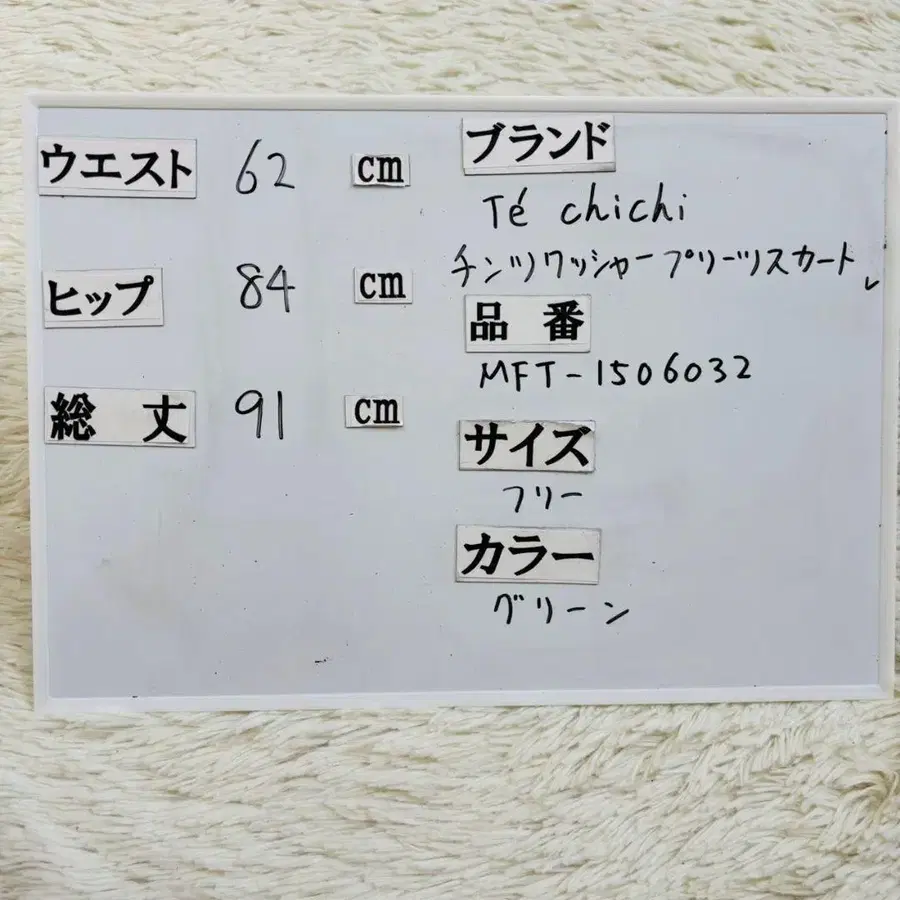 ウエスト 62 cm
ヒップ 84 cm
総丈 91 cm
ブランド
Té chichi
チンツワッシャープリーツスカート
品番
MFT-1506032
サイズ
フリー
カラー
グリーン